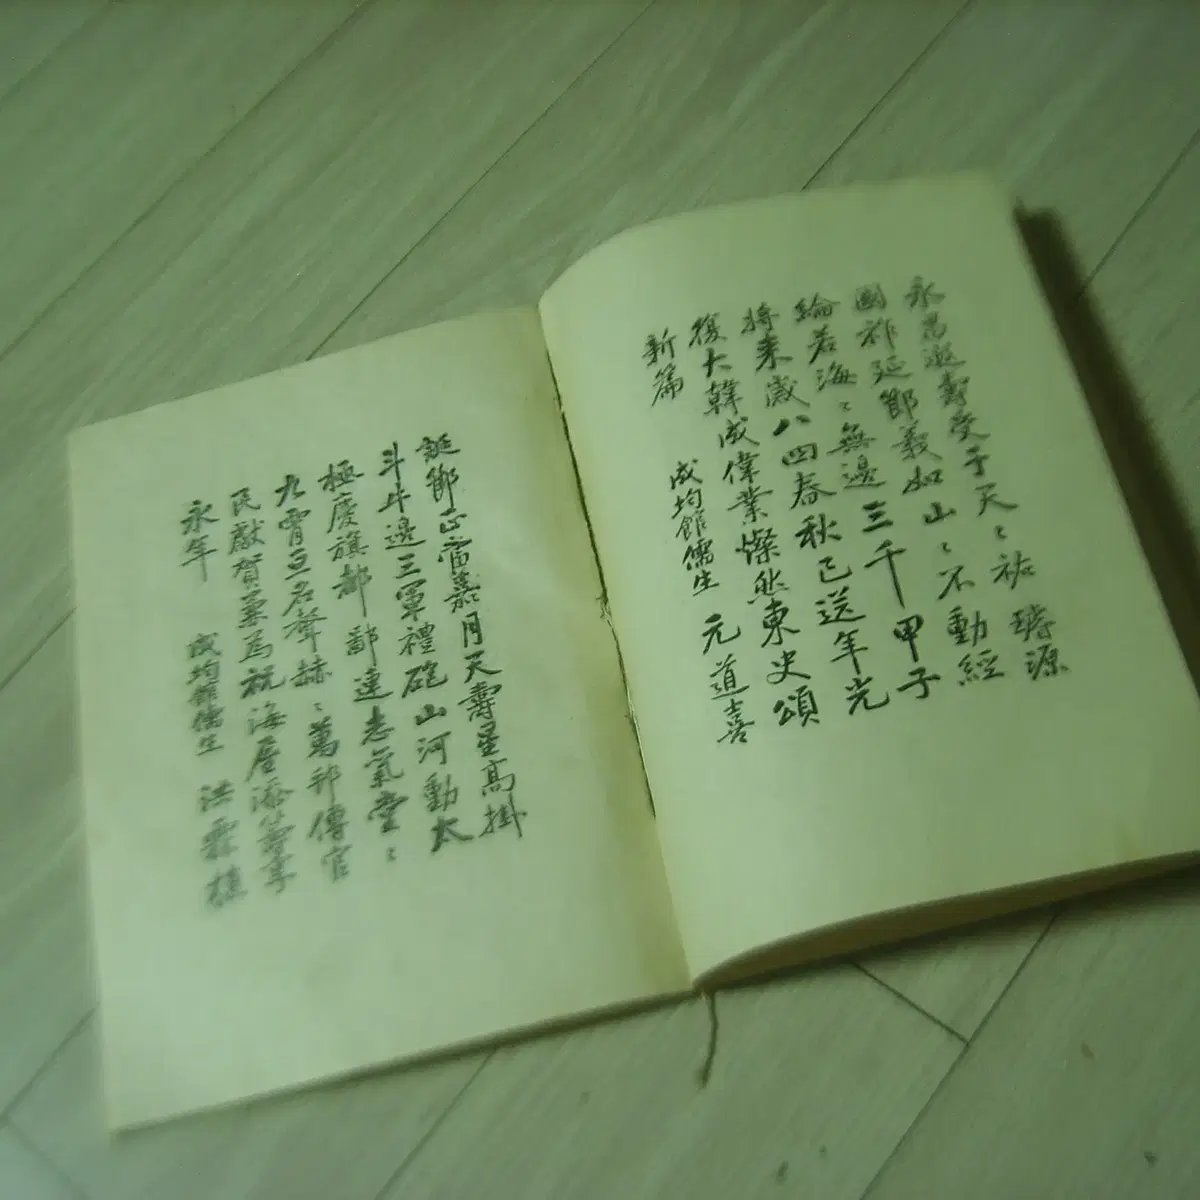 永昌遐壽受于天〻祐璿源
國祚延節義如山〻不動經
綸若海〻無邊三千甲子
將來歲八四春秋已送年光
復大韓成偉業燦然東史頌
新篇 成均館儒生 元道喜
誕節正當嘉月天壽星高掛
斗牛邊三軍禮砲山河動太
極慶旗都鄙連志氣堂〻
九霄亘名聲赫〻萬邦傳官
民獻賀兼爲祝海屋添籌享
永年 成均館儒生 洪霖